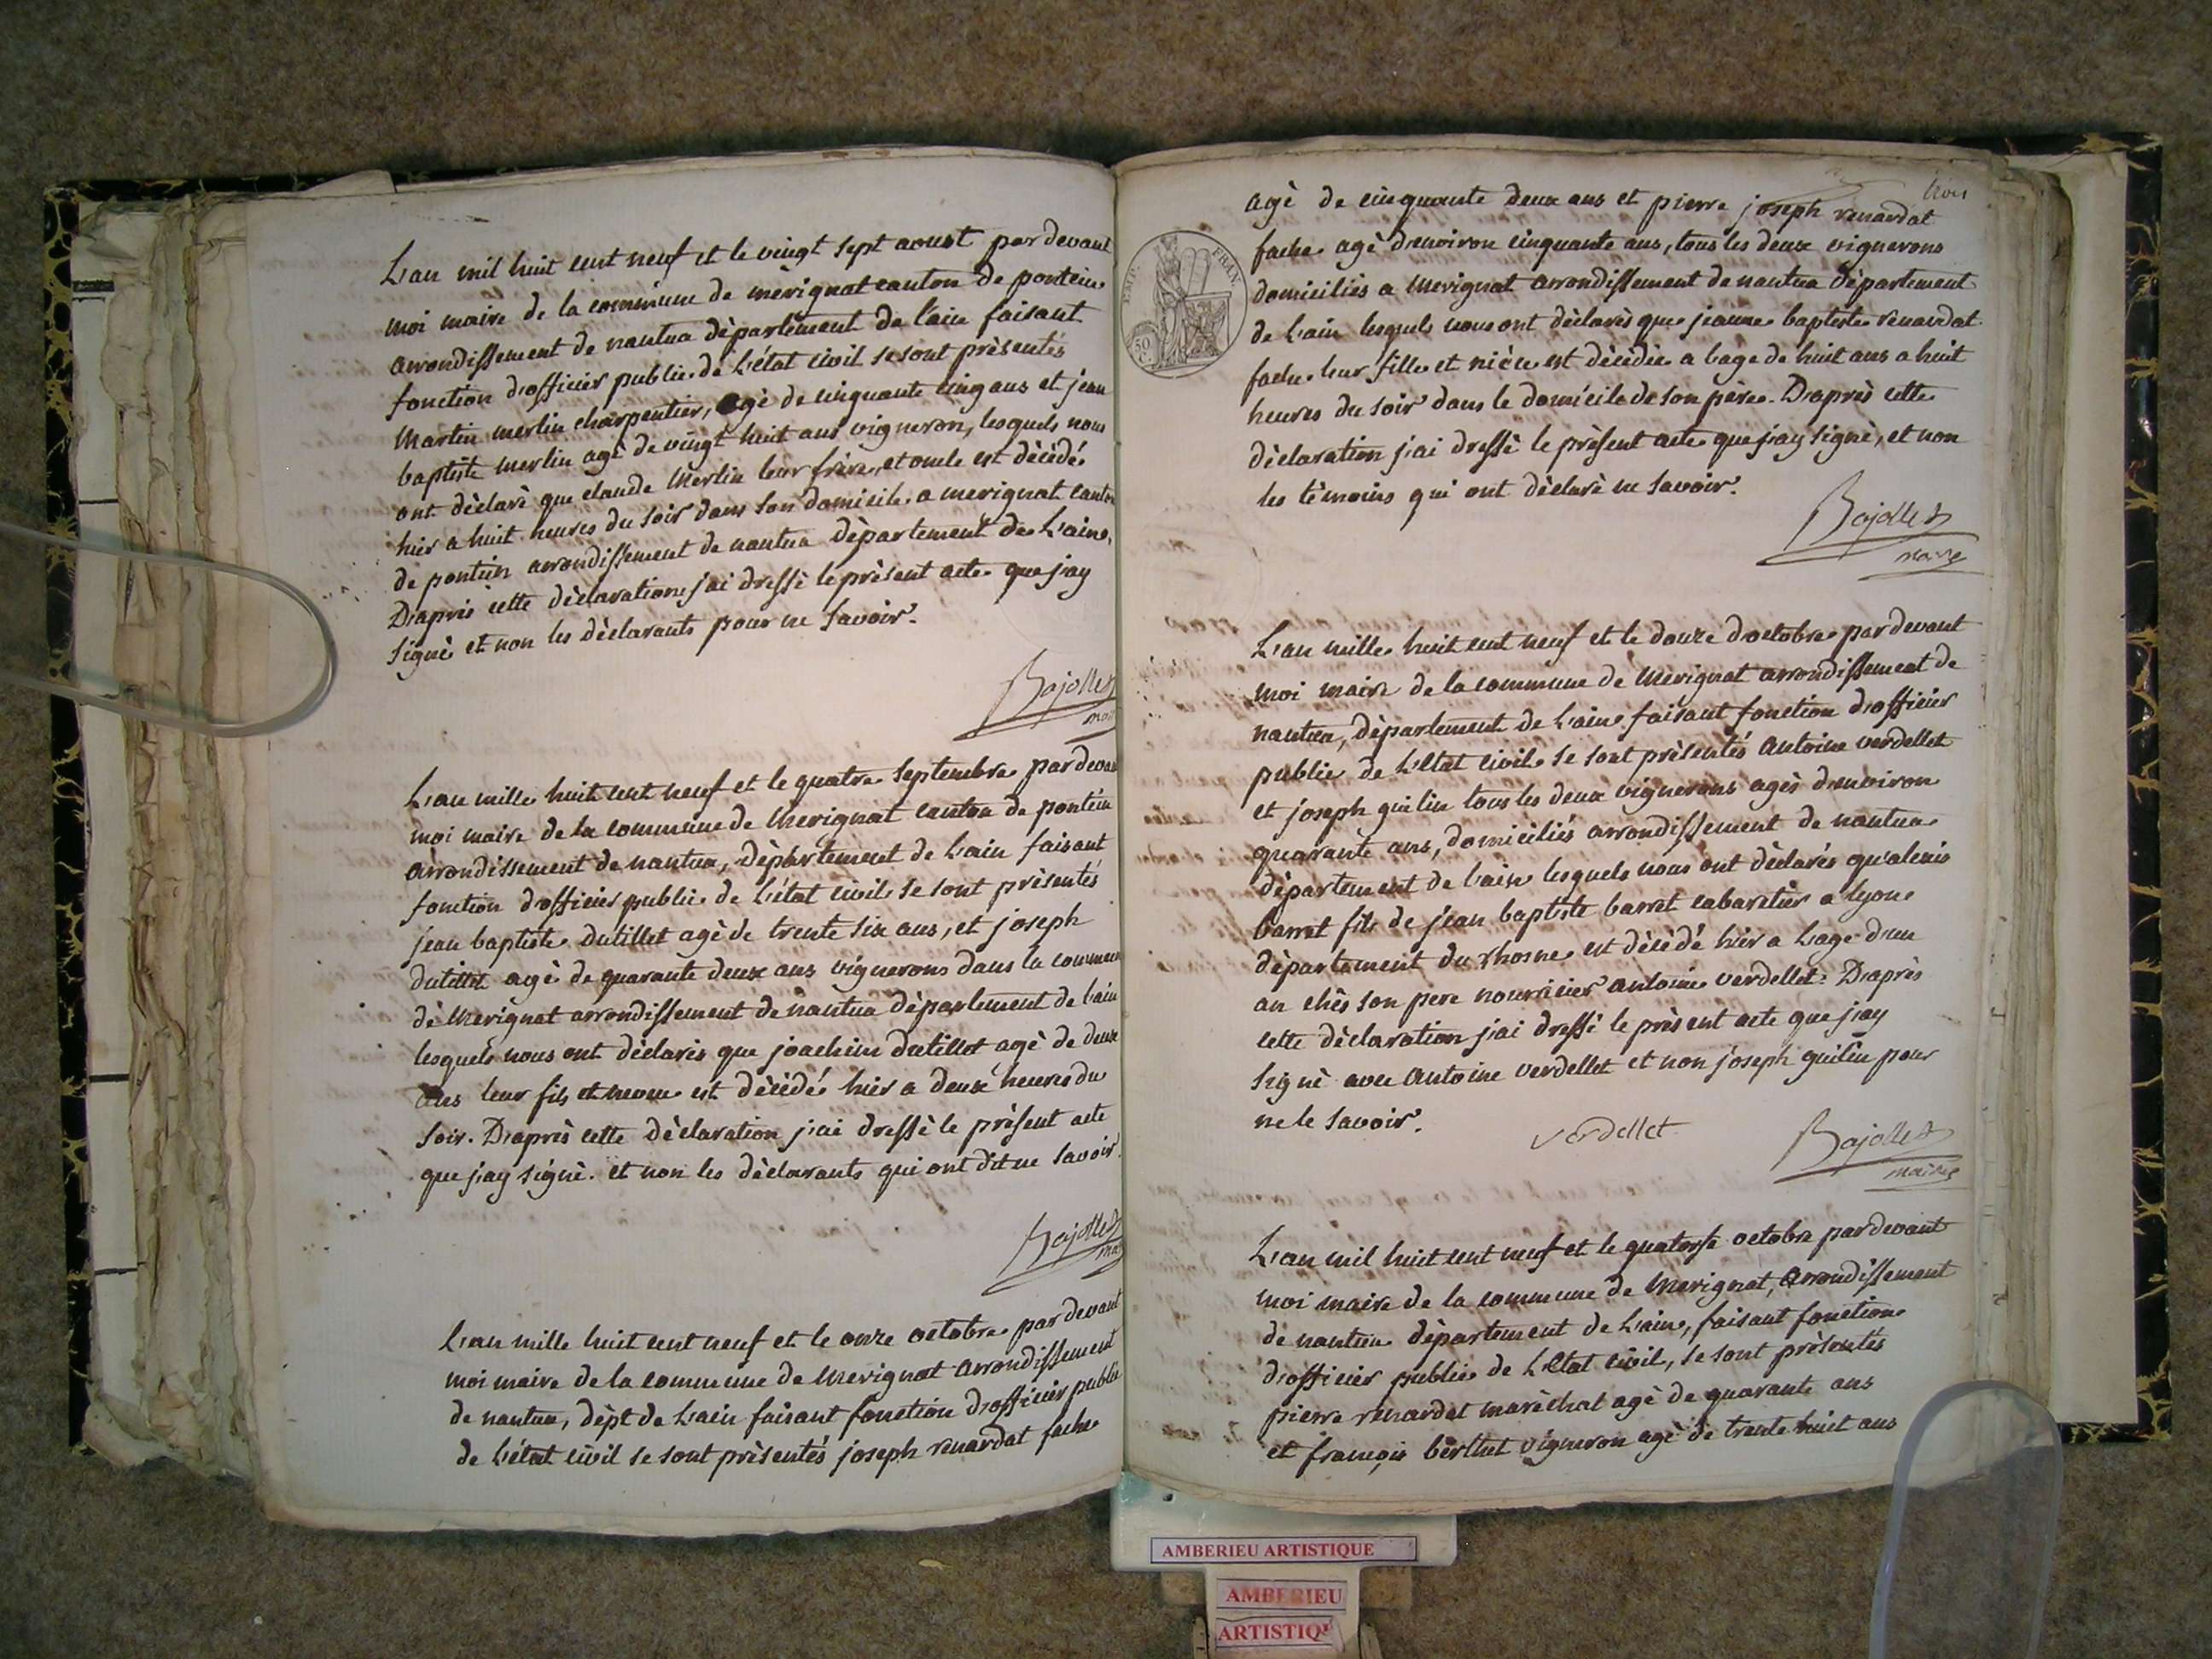 L'an mil huit cent neuf et le vingt sept aoust par devant
moi maire de la commune de mérignat canton de poncin
arrondissement de nantua département de l'ain faisant
fonction d'officier public de l'état civil se sont présentés
Martin merlin charpentier, agé de cinquante cinq ans et jean
baptiste merlin agé de vingt huit ans vigneron, lesquels nous
ont déclaré que claude Merlin leur frère et oncle est décédé
hier a huit heures du soir dans son domicile a merignat canton
de poncin arrondissement de nantua département de L'ain.
D'après cette déclaration j'ai dressé le présent acte que j'ay
signé et non les déclarants pour ne savoir.
Bajollet
maire
L'an mille huit cent neuf et le quatre septembre par devant
moi maire de la commune de Merignat canton de poncin
arrondissement de nantua, département de L'ain faisant
fonction d'officier public de L'état civil se sont présentés
jean baptiste dutillet agé de trente six ans, et joseph
dutillet agé de quarante deux ans vignerons dans la commune
de Merignat arrondissement de nantua département de l'ain
lesquels nous ont déclarés que joachim dutillet agé de deux
ans leur fils et neveu est décédé hier a deux heures du
soir. D'après cette déclaration j'ai dressé le présent acte
que j'ay signé. et non les déclarants qui ont dit ne savoir.
Bajollet
maire
L'an mille huit cent neuf et le onze octobre par devant
moi maire de la commune de Merignat arrondissement
de nantua, dépt de L'ain faisant fonction d'officier public
de L'état civil se sont présentés joseph renardat fache
trois
agé de cinquante deux ans et pierre joseph renardat
fache agé d'environ cinquante ans, tous les deux vignerons
domiciliés a Merignat arrondissement de nantua département
de L'ain lesquels nous ont déclarés que jeanne baptiste renardat
fache leur fille et nièce est décédée a l'age de huit ans a huit
heures du soir dans le domicile de son père. D'après cette
déclaration j'ai dressé le présent acte que j'ay signé, et non
les témoins qui ont déclaré ne savoir.
EMP. FRAN.
50
C.
Bajollet
maire
L'an mille huit cent neuf et le douze d'octobre par devant
moi maire de la commune de Merignat arrondissement de
nantua, département de L'ain faisant fonction d'officier
public de L'Etat civil se sont présentés Antoine verdellet
et joseph guilin tous les deux vignerons agés d'environ
quarante ans, domiciliés arrondissement de nantua
département de l'ain lesquels nous ont déclarés qu'alexis
barret fils de jean baptiste barret cabaretier a Lyon
département du rhosne est décédé hier a L'age d'un
an chés son pere nourricier antoine verdellet. D'après
cette déclaration j'ai dressé le présent acte que j'ay
signé avec Antoine verdellet et non joseph guilin pour
ne le savoir.
verdellet
Bajollet
maire
L'an mil huit cent neuf et le quatorse octobre par devant
moi maire de la commune de Merignat, arrondissement
de nantua département de L'ain, faisant fonction
d'officier public de L'Etat civil, se sont présentés
pierre renardat maréchal agé de quarante ans
et françois berthet vigneron agé de trente huit ans
AMBERIEU ARTISTIQUE
AMBERIEU
ARTISTIQUE